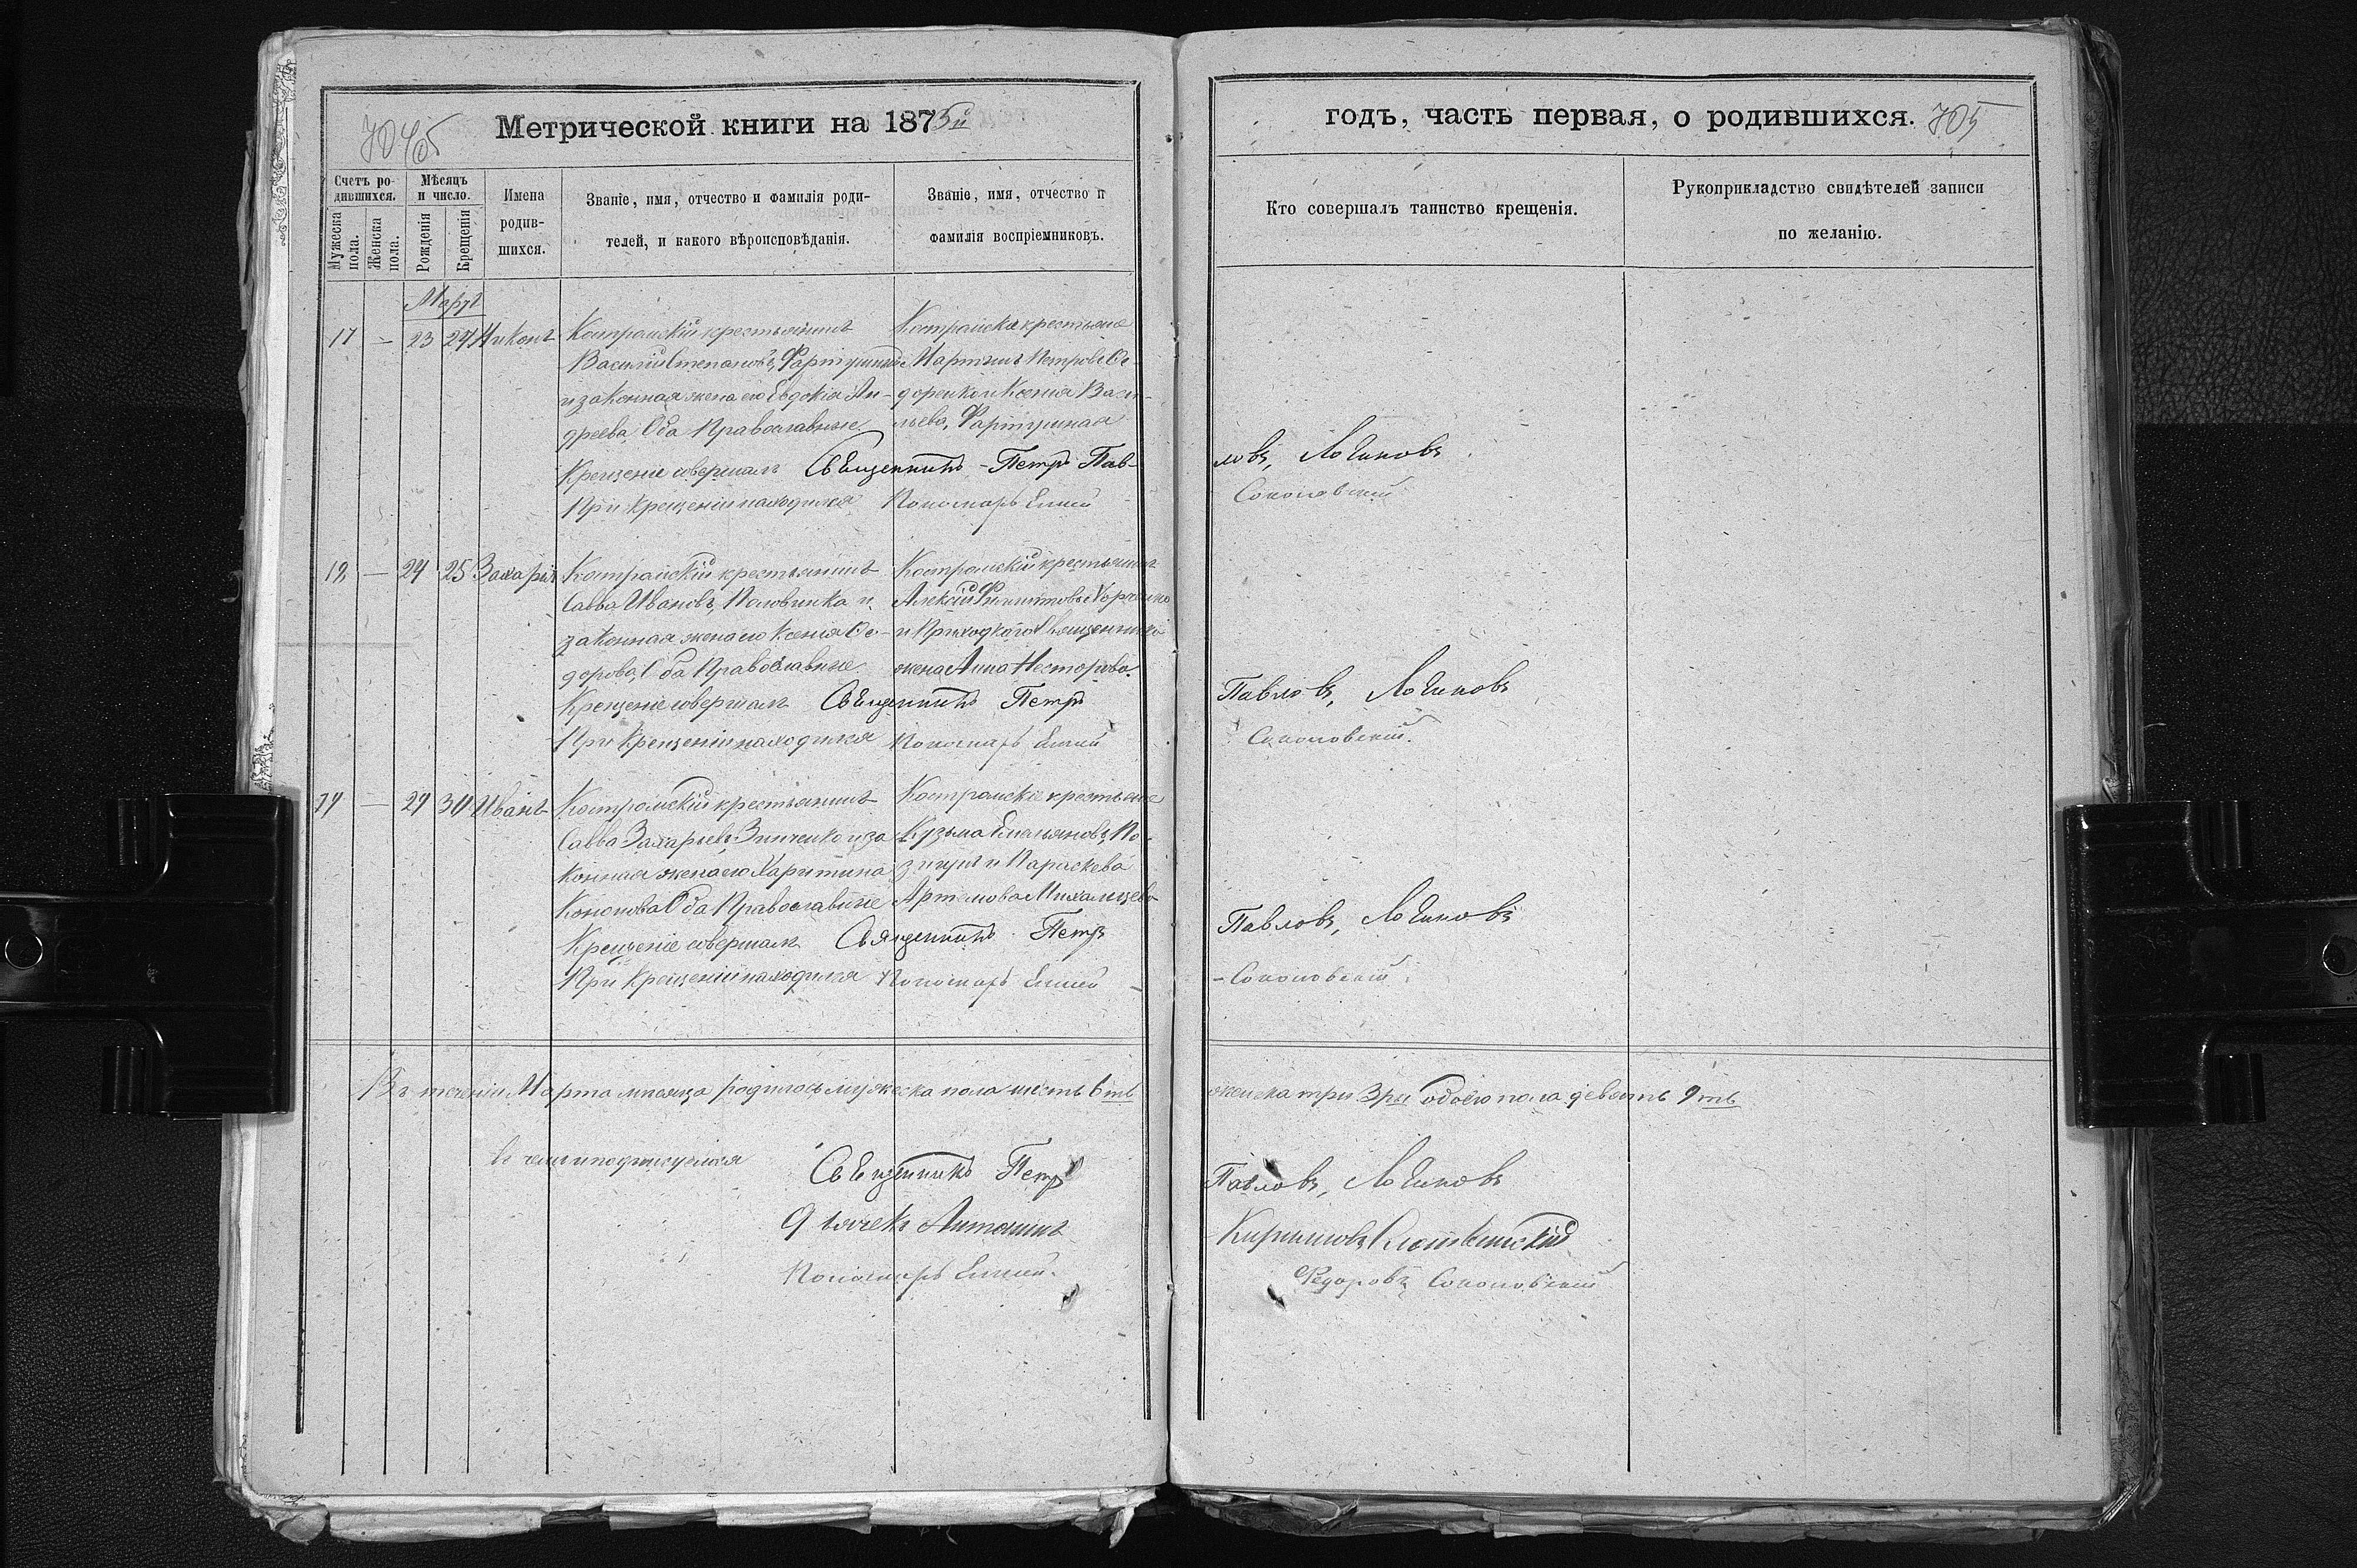 704об
Метрической книги на 1875й
годъ, часть первая, о родившихся. 705
Счетъ родившихся.
Мужеска пола.
Женска пола.
Мѣсяцъ и число.
Рожденія
Крещенія
Имена родившихся.
Званіе, имя, отчество и фамилія родителей, и какого вѣроисповѣданія.
Званіе, имя, отчество и фамилія воспріемниковъ.
Кто совершалъ таинство крещенія.
Рукоприкладство свидѣтелей записи по желанію.
Мартъ
17 — 23 27 Никонъ
Костромскій крестьянинъ
Василій Степановъ, Фартушный
и законная жена его Евдокія Ан-
дреева, Оба Православные
Костромскіе крестьяне
Мартинъ Петровъ Ѳе-
доренко и Ксенія Васи-
льева, Фартушная
Крещеніе совершалъ Священникъ Петръ Пав-
ловъ, Логиновъ
При крещеніи находился Пономарь Елисей
Соколовскій
18 — 24 25 Захарій
Костромскій крестьянинъ
Савва Ивановъ, Половинка и
законная жена его Ксенія Ѳе-
дорова, Оба Православные
Костромскій крестьянинъ
Алексій Филиповъ Харченко
и Приходскаго Священника
жена Анна Несторова.
Крещеніе совершалъ Священникъ Петръ
Павловъ, Логиновъ
При крещеніи находился Пономарь Елисей
Соколовскій.
19 — 29 30 Иванъ
Костромскій крестьянинъ
Савва Захарьевъ, Зинченко и за
конная жена его Харитина
Кононова Оба Православные
Костромскіе крестьяне
Кузьма Емельяновъ, По-
и Параскева
Артемова
Крещеніе совершалъ Священникъ Петръ
Павловъ, Логиновъ
При крещеніи находился Пономарь Елисей
Соколовскій.
Въ теченіи Марта мѣсяца родилось мужеска пола шесть 6ть
женска три 3ри обоего пола девять 9ть
въ чемъ и подписуемся
Священникъ Петръ
Павловъ, Логиновъ
Дьячекъ Антонинъ
Кирилловъ
Пономарь Елисей
Ѳедоровъ Соколовскій